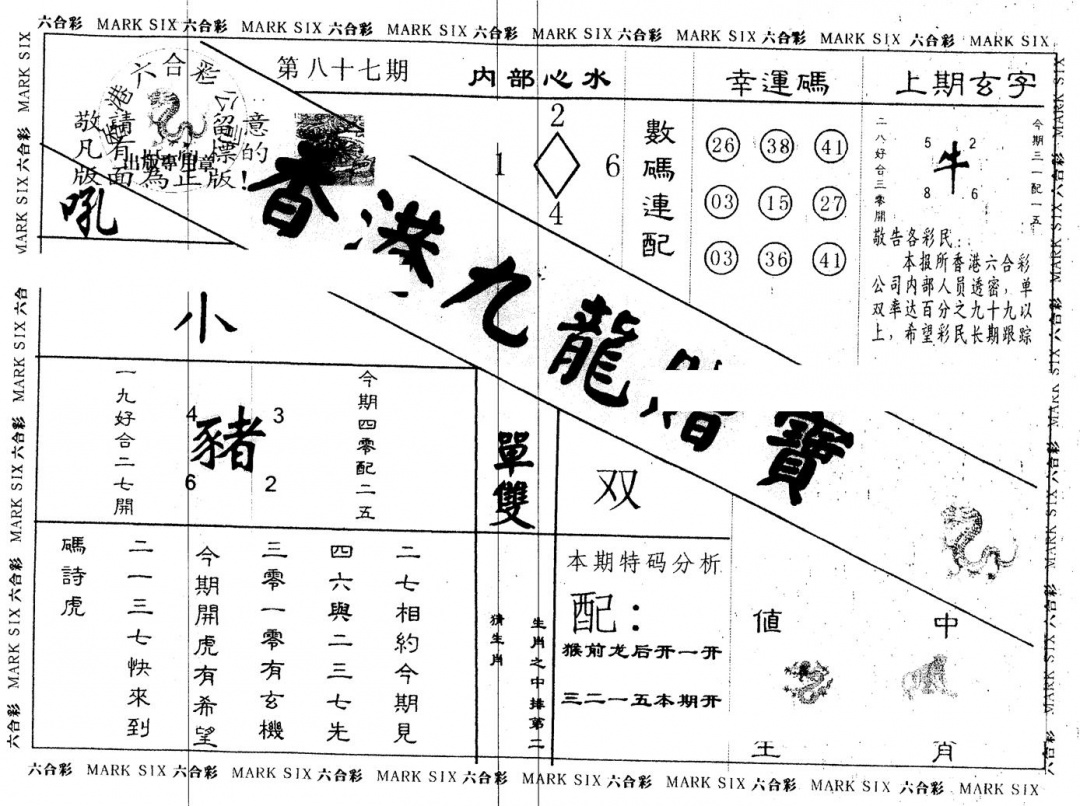 六合彩 MARK SIX 六合彩 MARK SIX 六合彩 MARK SIX 六合彩 MARK SIX 六合彩 MARK SIX 六合彩 MARK SIX 六合彩 MARK SIX
第八十七期
香港九龍
寶
敬請留意
凡有標的
版面為正版!
出版專用章
吼
小
内部心水
2
1 6
4
數碼連配
幸運碼
26 38 41
03 15 27
03 36 41
上期玄字
二八好合三零開
5 2
牛
8 6
今期三一配一五
敬告各彩民:
本报所香港六合彩
公司内部人员透密,单
双率达百分之九十九以
上,希望彩民长期跟踪
一九好合二七開
4 3
豬
6 2
今期四零配二五
單雙
双
碼詩虎
二一三七快來到
今期開虎有希望
三零一零有玄機
四六與二三七先
二七相約今期見
猜生肖
生肖之中排第二
本期特码分析
配:
猴前龙后开一开
三二一五本期开
值 中
王 肖
六合彩 MARK SIX 六合彩 MARK SIX 六合彩 MARK SIX 六合彩 MARK SIX 六合彩 MARK SIX 六合彩 MARK SIX 六合彩 MARK SIX